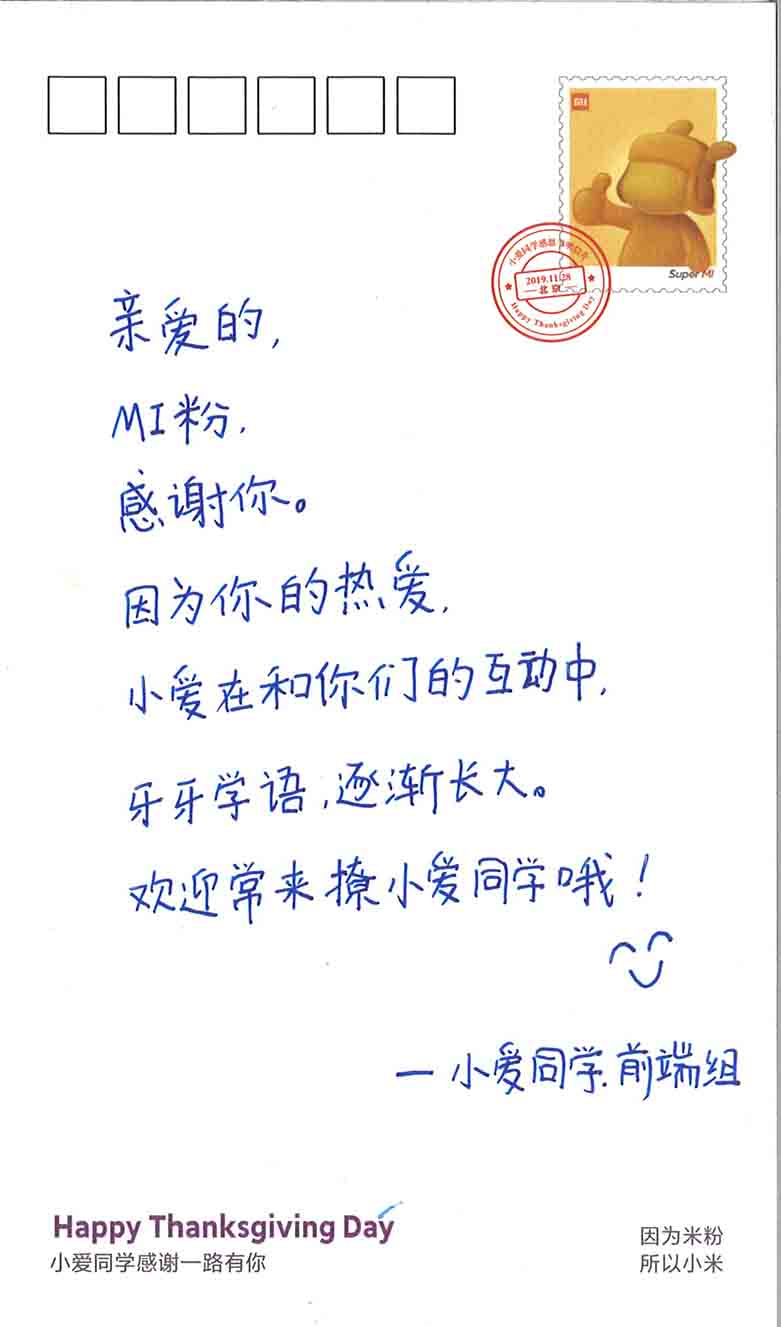 MI
Super MI
小爱同学感恩
2019.11.28
北京
Happy Thanksgiving Day
亲爱的,
MI粉,
感谢你。
因为你的热爱,
小爱在和你们的互动中,
牙牙学语,逐渐长大。
欢迎常来撩小爱同学哦!
一 小爱同学.前端组
Happy Thanksgiving Day
小爱同学感谢一路有你
因为米粉
所以小米